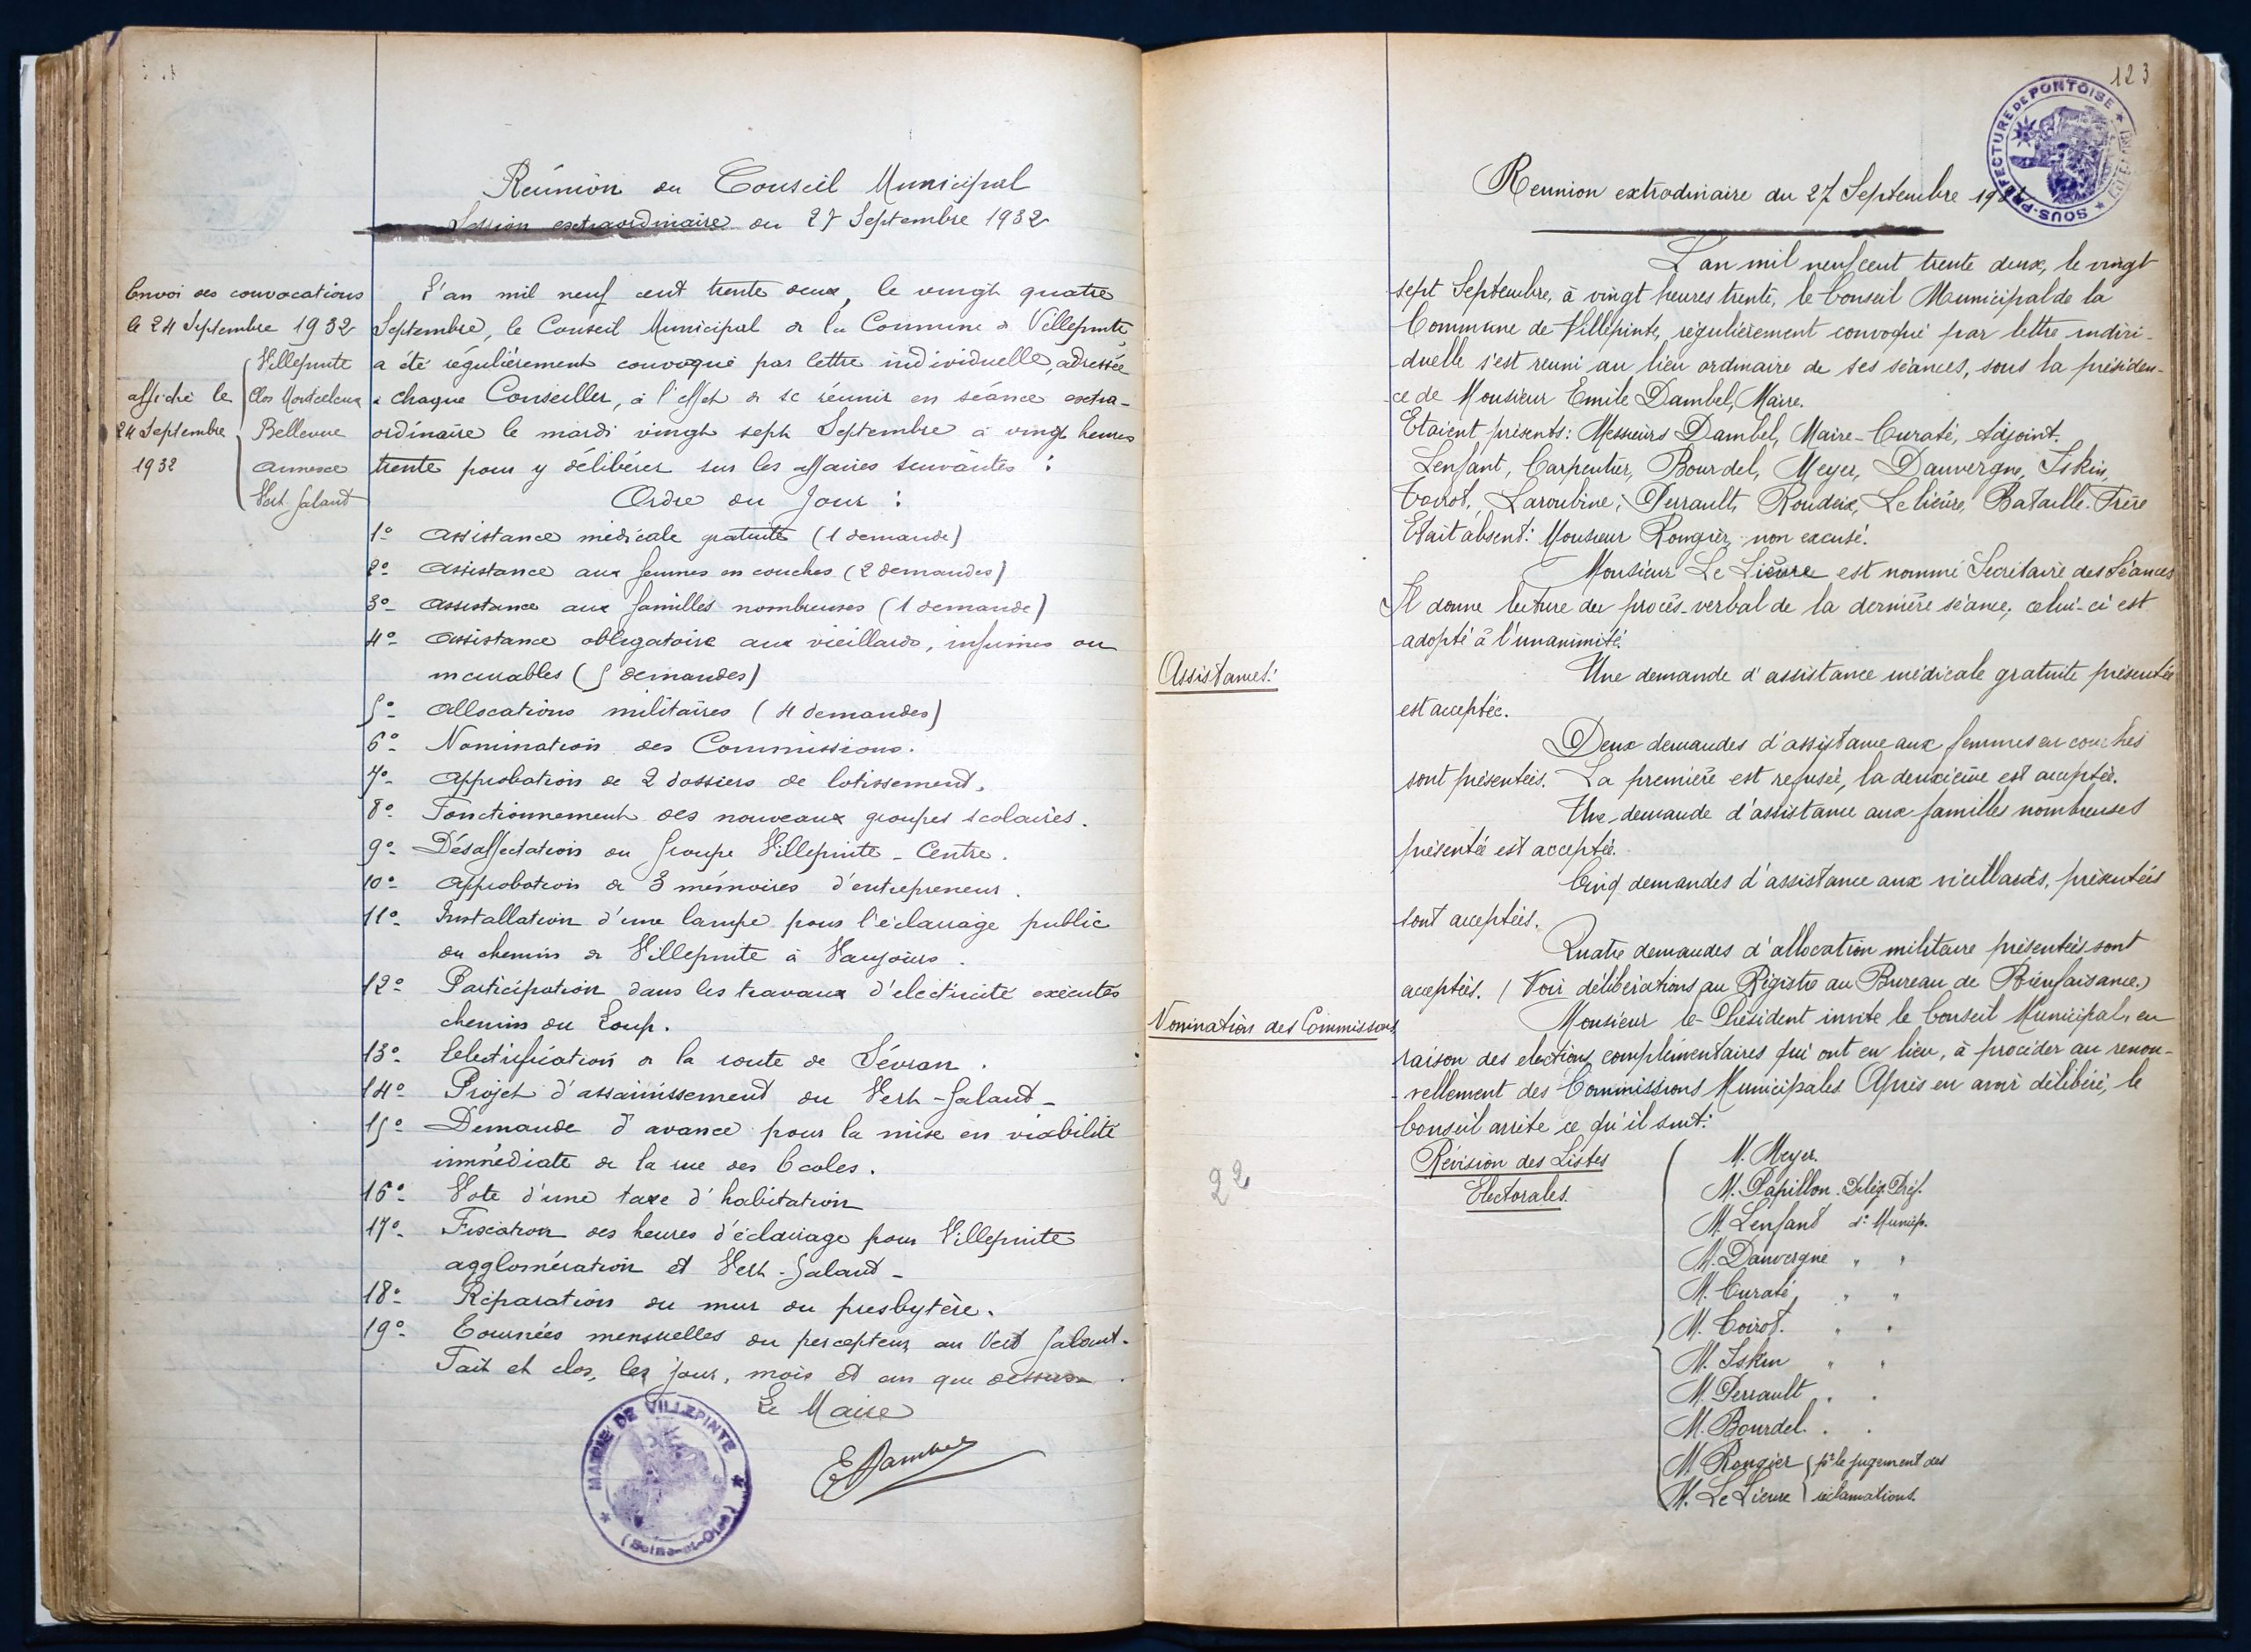 Réunion du Conseil Municipal
Session extraordinaire du 27 Septembre 1932
Envoi des convocations
le 24 Septembre 1932
affiché le
24 Septembre
1932
Villepinte
Clos Montceleux
Bellevue
Annexe
Vert Galand
L'an mil neuf cent trente deux, le vingt quatre
Septembre, le Conseil Municipal de la Commune de Villepinte,
a été régulièrement convoqué par lettre individuelle, adressée
à chaque Conseiller, à l'effet de se réunir en séance extra-
ordinaire le mardi vingt sept Septembre à vingt heures
trente pour y délibérer sur les affaires suivantes :
Ordre du Jour :
1° Assistance médicale gratuite (1 demande)
2° Assistance aux femmes en couches (2 demandes)
3° Assistance aux familles nombreuses (1 demande)
4° Assistance obligatoire aux vieillards, infirmes ou
incurables (5 demandes)
5° Allocations militaires (4 demandes)
6° Nomination des Commissions.
7° Approbation de 2 dossiers de lotissement.
8° Fonctionnement des nouveaux groupes scolaires.
9° Désaffectation du Groupe Villepinte - Centre.
10° Approbation de 3 mémoires d'entrepreneur.
11° Installation d'une lampe pour l'éclairage public
du chemin de Villepinte à Vaujours.
12° Participation dans les travaux d'electricité exécutés
chemin du Loup.
13° Electrification de la route de Sévran.
14° Projet d'assainissement du Vert-Galand -
15° Demande d'avance pour la mise en viabilité
immédiate de la rue des Ecoles.
16° Vote d'une taxe d'habitation
17° Fixation des heures d'éclairage pour Villepinte
agglomération et Vert-Galand -
18° Réparation du mur du presbytère.
19° Tournées mensuelles du percepteur au Vert Galant.
Fait et clos, les jour, mois et an que dessus.
Le Maire
EDambel
MAIRIE DE VILLEPINTE
(Seine-et-Oise)
123
SOUS-PRÉFECTURE DE PONTOISE
Reunion extrodinaire du 27 Septembre 19
L'an mil neuf cent trente deux, le vingt
sept Septembre, à vingt heures trente, le Conseil Municipal de la
Commune de Villepinte, régulièrement convoqué par lettre indivi-
duelle s'est reuni au lieu ordinaire de ses séances, sous la présiden-
-ce de Monsieur Emile Dambel, Maire.
Etaient présents: Messieurs Dambel, Maire - Curaté, Adjoint.
Lenfant, Carpentier, Bourdel, Meyer, Dauvergne, Iskin,
Coirot, Laroubine, Perrault, Roudeix, Le Lièvre, Bataille. Frère
Etait absent: Monsieur Rongier, non excusé.
Monsieur Le Lièvre est nommé Secrétaire des Séances
Il donne lecture du procès-verbal de la dernière séance, celui-ci est
adopté à l'unanimité.
Assistances:
Une demande d'assistance médicale gratuite présentée
est acceptée.
Deux demandes d'assistance aux femmes en couches
sont présentées. La première est refusée, la deuxième est acceptée.
Une demande d'assistance aux familles nombreuses
présentée est acceptée.
Cinq demandes d'assistance aux vieillards, présentées
sont acceptées.
Quatre demandes d'allocation militaire présentées sont
acceptées. (Voir délibérations au Régistre au Bureau de Bienfaisance.)
Nomination des Commissions
Monsieur le Président invite le Conseil Municipal, en
raison des elections complémentaires qui ont eu lieu, à procéder au renou-
-vellement des Commissions Municipales. Après en avoir délibéré, le
Conseil arrête ce qu'il suit:
22
Révision des Listes
Electorales.
M. Meyer.
M. Papillon. Délég. Préf.
M. Lenfant d° Municip.
M. Dauvergne " "
M. Curaté, " "
M. Coirot. " "
M. Iskin " "
M. Perrault " "
M. Bourdel. " "
M. Rongier
M. Le Lievre
pr le jugement des
réclamations.